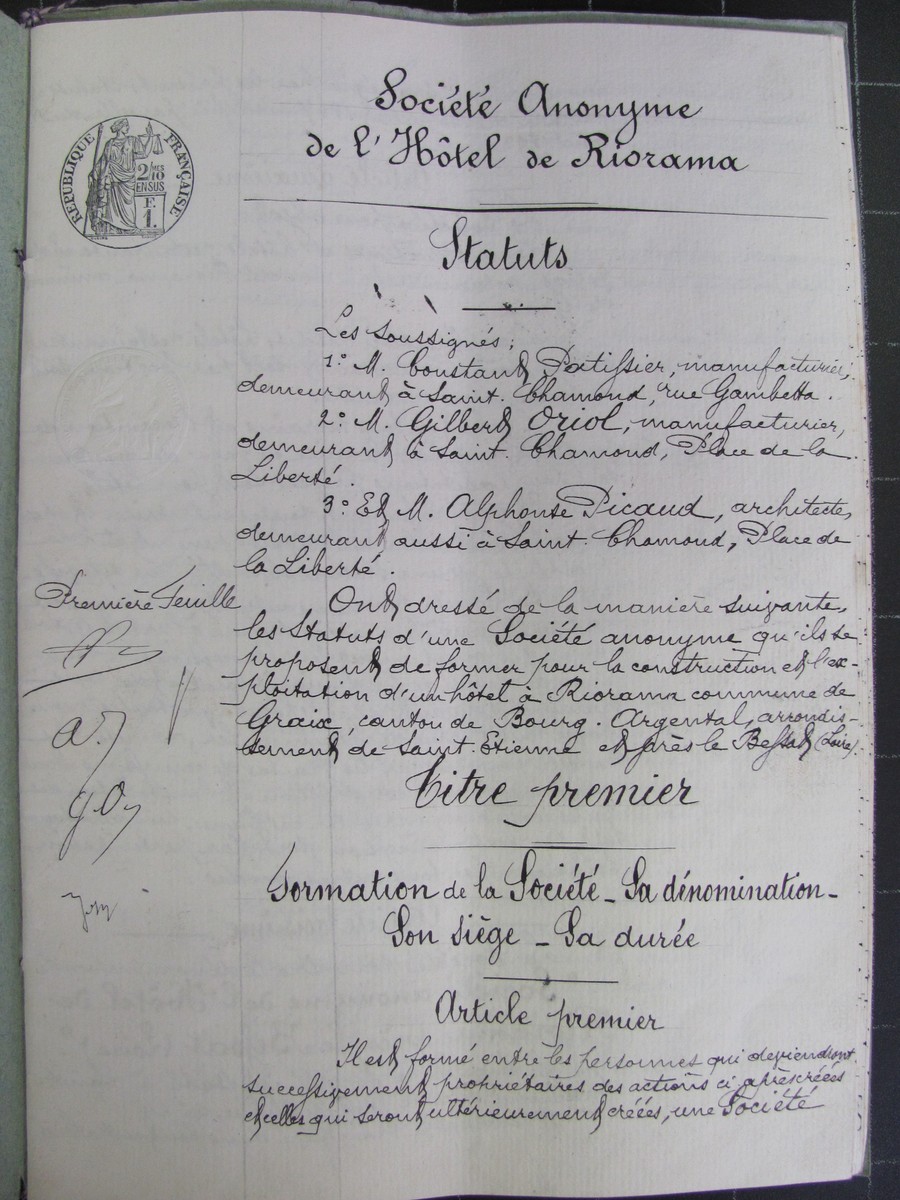 Société Anonyme
de l'Hôtel de Riorama
RÉPUBLIQUE FRANÇAISE
2/10es
EN SUS
F.
1.
Statuts
Les soussignés;
1º M. Constant Patissier, manufacturier,
demeurant à Saint-Chamond, rue Gambetta.
2º M. Gilbert Oriol, manufacturier,
demeurant à Saint-Chamond, Place de la
Liberté.
3º Et M. Alphonse Picaud, architecte,
demeurant aussi à Saint-Chamond, Place de
la Liberté.
Première Feuille
Ont dressé de la manière suivante,
les statuts d'une Société anonyme qu'ils se
proposent de former pour la construction et l'ex-
ploitation d'un hôtel à Riorama commune de
Graix, canton de Bourg-Argental, arrondis-
sement de Saint-Etienne et près le Bessat (Loire).
Titre premier
Formation de la Société - Sa dénomination -
Son siège - Sa durée
Article premier
Il est formé entre les personnes qui deviendront
successivement propriétaires des actions ci après créées
et celles qui seront ultérieurement créées, une Société